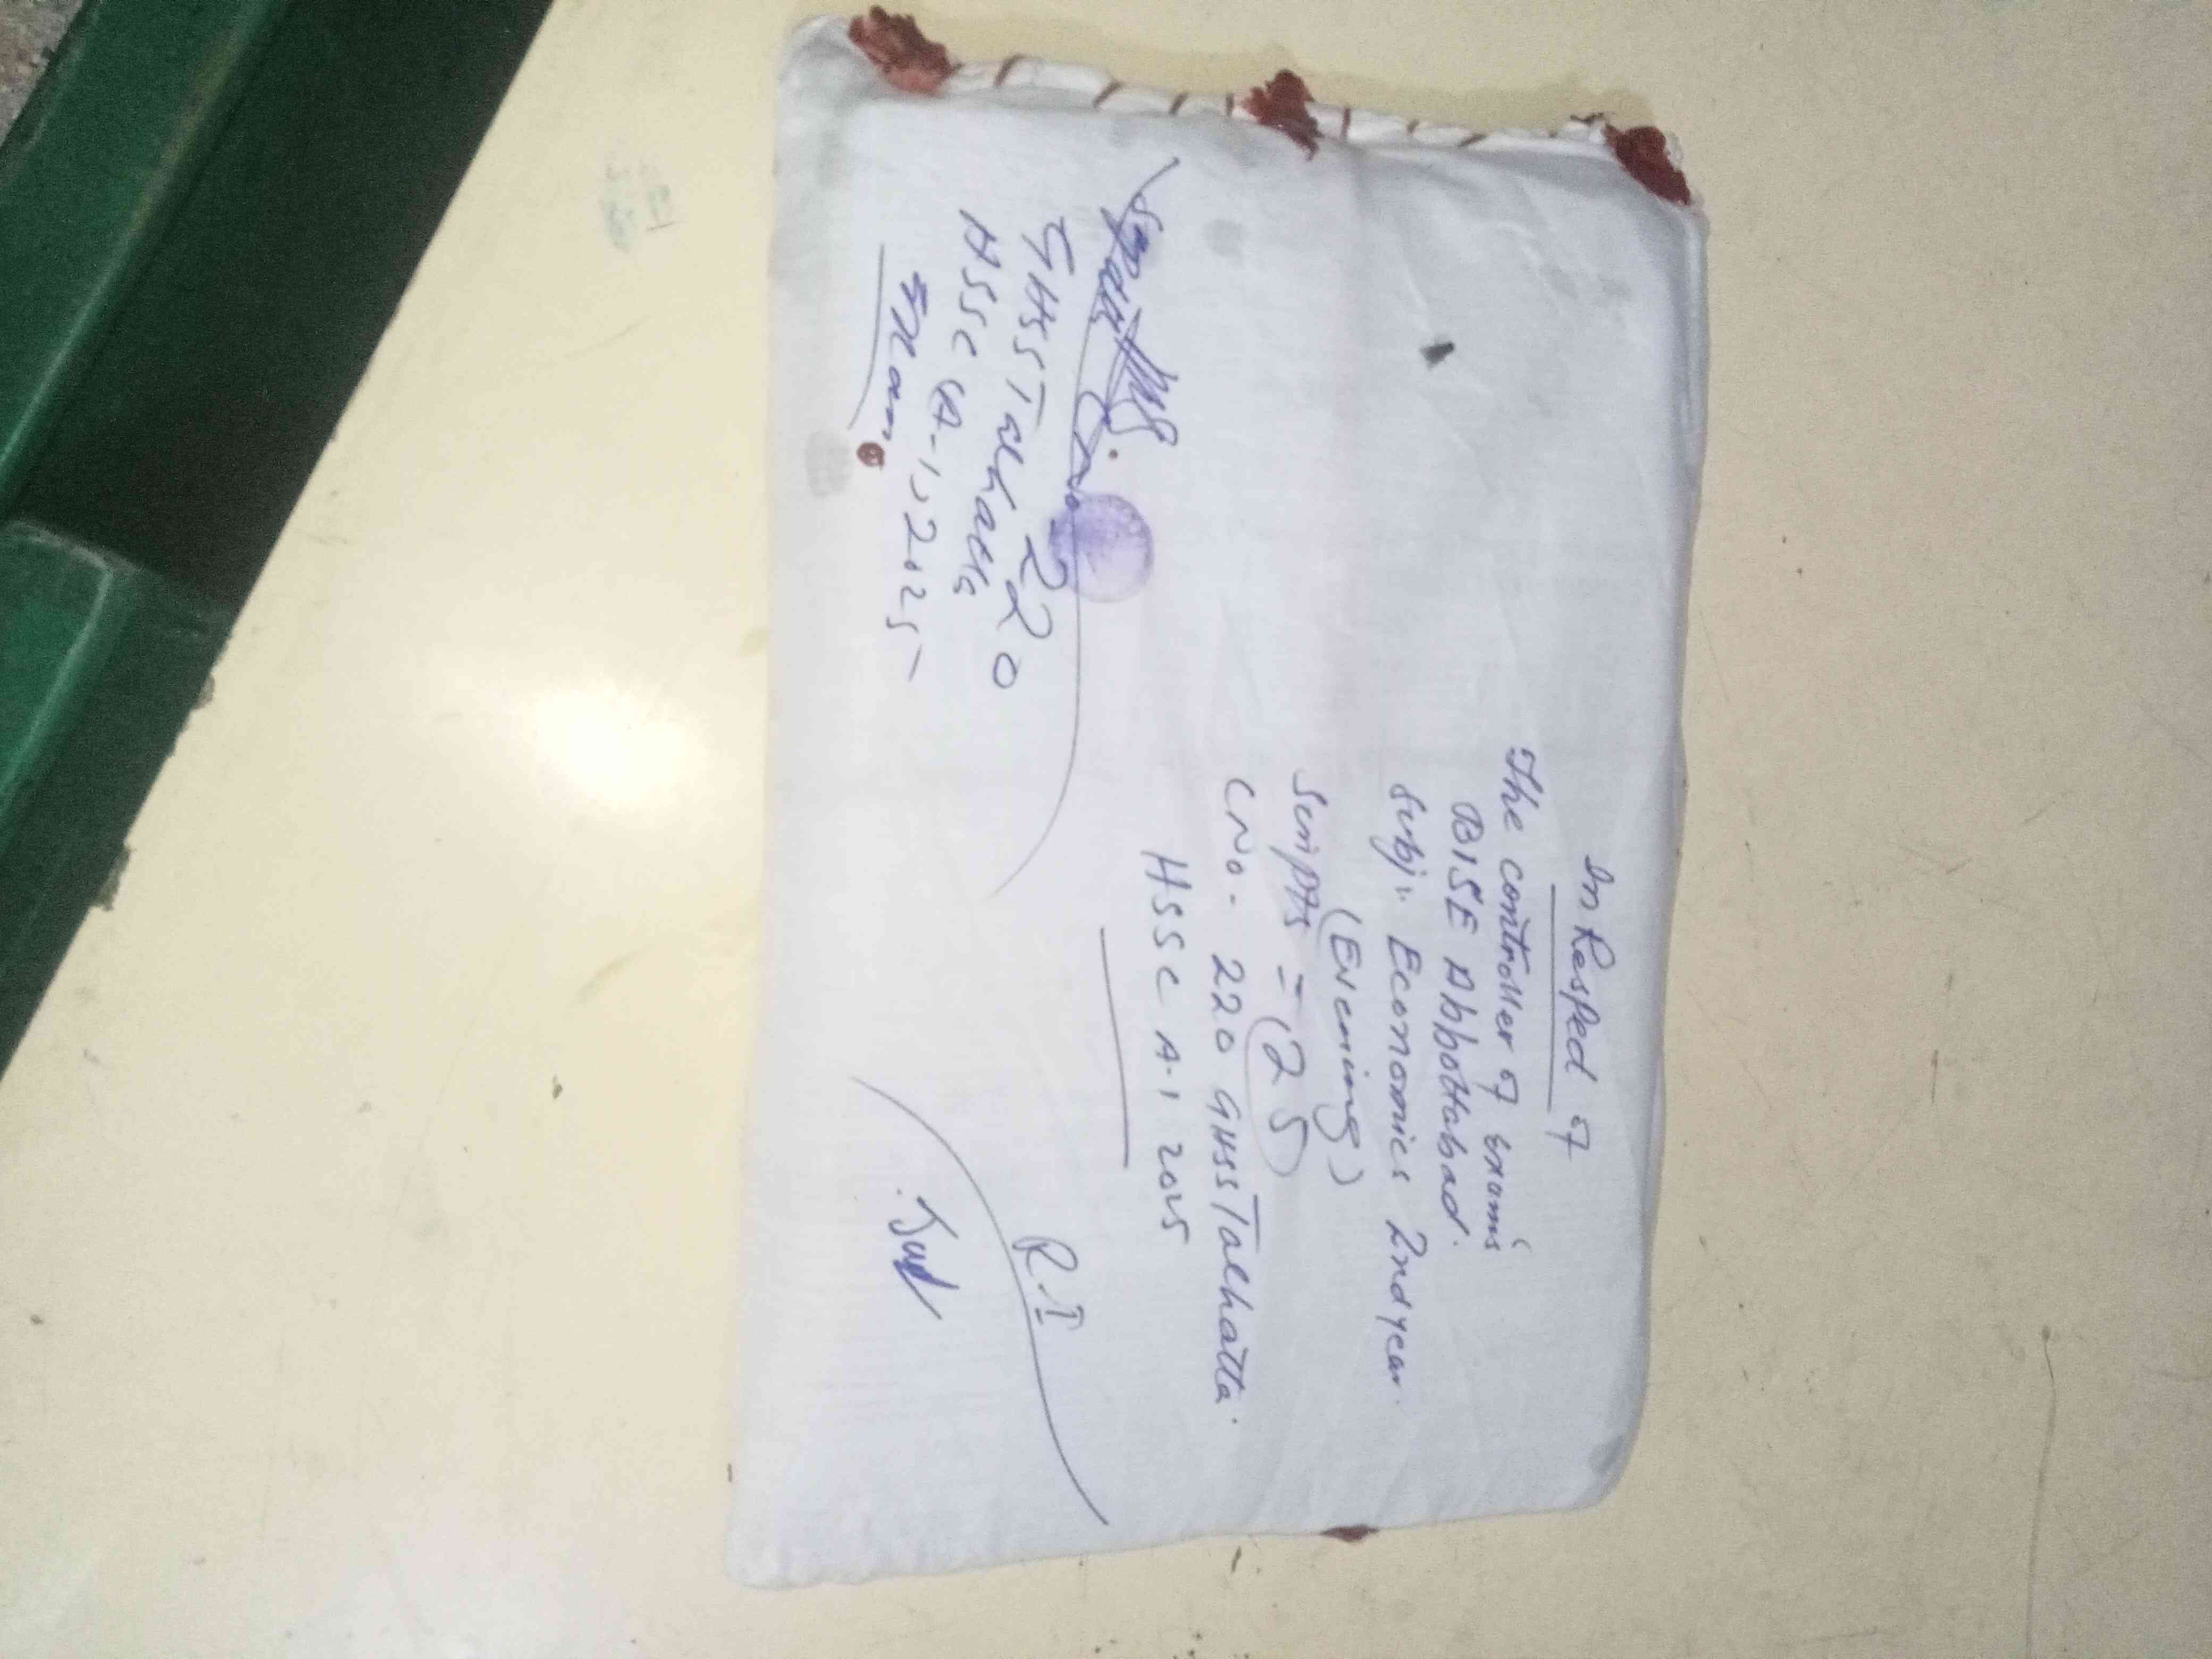 In Resped of
The controller of exams
BISE Abbottabad.
Subj:- Economics 2nd year.
(Evening)
Scripts = (25)
C No - 220 GHSS Talhatta.
HSSC A-I 2025
R.I
C No 220
GHSS Talhatta
HSSC (A-I) 2025
Exam